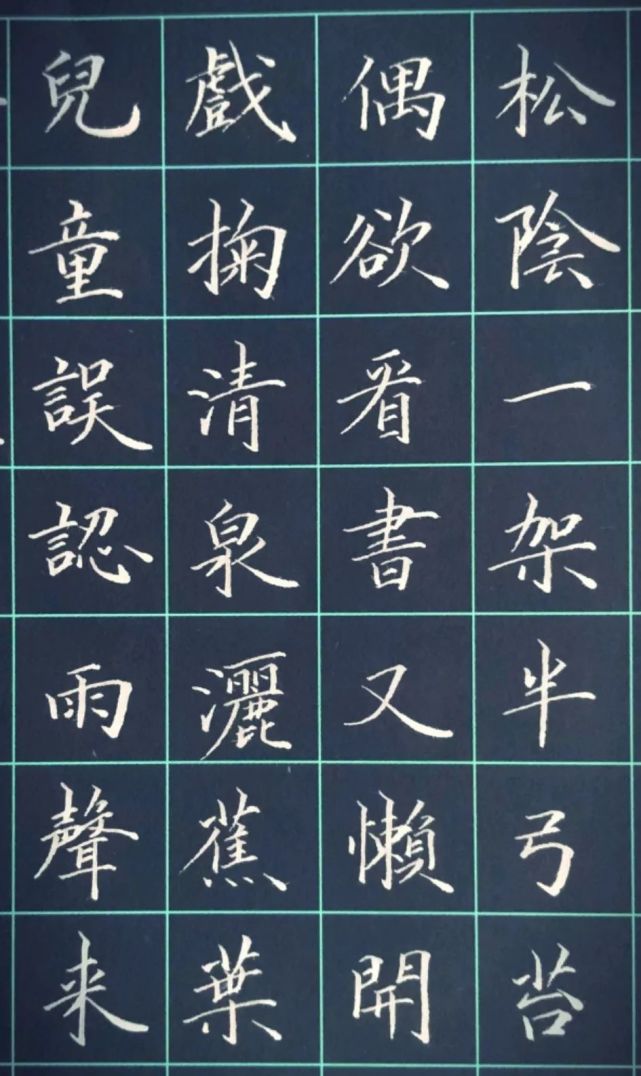 松陰一架半弓苔
偶欲看書又懶開
戲掬清泉灑蕉葉
兒童誤認雨聲来